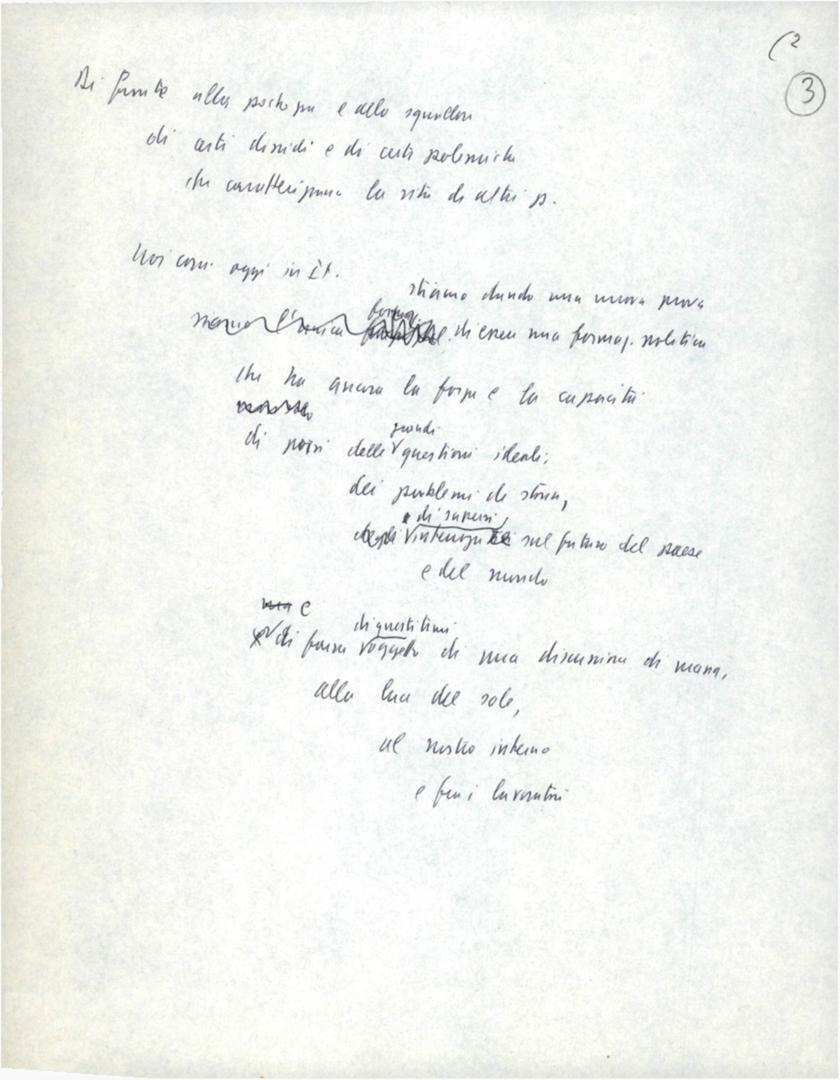 (2
3
Di fronte alla pochezza e allo squallore
di certi dissidi e di certe polemiche
che caratterizzano la vita di altri p.
Noi com. oggi in It.
stiamo dando una nuova prova
siamo l'unica formaz. di essere una formaz. politica
che ha ancora la forza e la capacità
di porsi delle grandi questioni ideali;
dei problemi di storia,
di sapersi
degli interrogare sul futuro del paese
e del mondo
ma e
di questi temi
di fare oggetto di una discussione di massa,
alla luce del sole,
al nostro interno
e fra i lavoratori